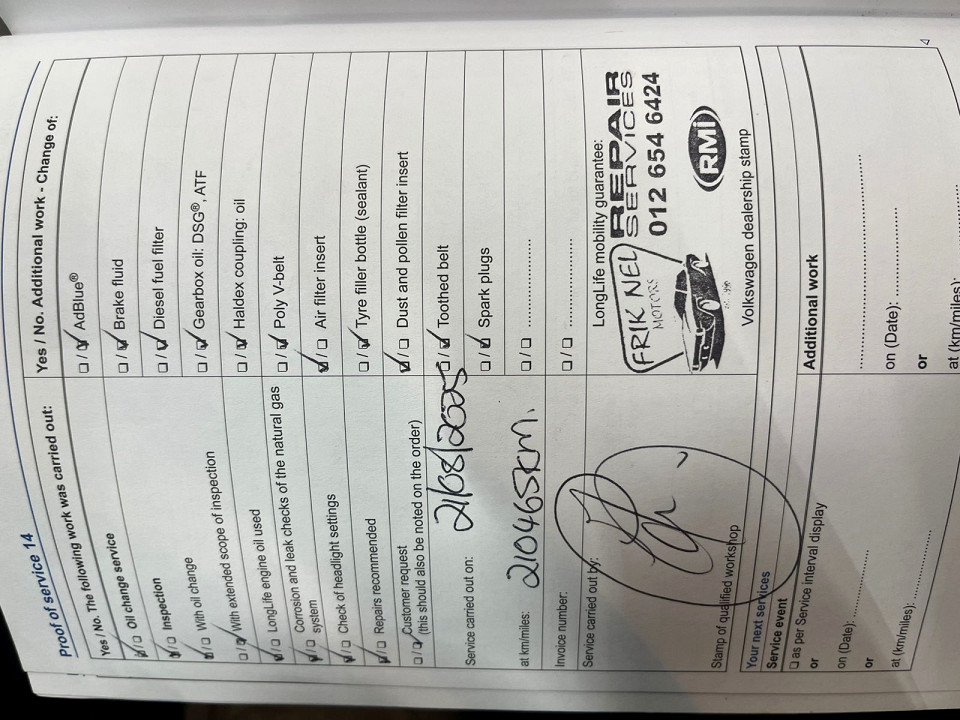 Proof of service 14
Yes / No. The following work was carried out:
Oil change service
Inspection
With oil change
With extended scope of inspection
LongLife engine oil used
Corrosion and leak checks of the natural gas
system
Check of headlight settings
Repairs recommended
Customer request
(this should also be noted on the order)
Service carried out on: 21/08/2025
at km/miles: 210465km.
Invoice number:
Service carried out by:
Stamp of qualified workshop
Yes / No. Additional work - Change of:
AdBlue®
Brake fluid
Diesel fuel filter
Gearbox oil: DSG®, ATF
Haldex coupling: oil
Poly V-belt
Air filter insert
Tyre filler bottle (sealant)
Dust and pollen filter insert
Toothed belt
Spark plugs
LongLife mobility guarantee:
FRIK NEL
MOTORS
REPAIR
SERVICES
012 654 6424
RMi
Volkswagen dealership stamp
Your next services
Service event
as per Service interval display
or
on (Date):
or
at (km/miles):
Additional work
on (Date):
or
at (km/miles):